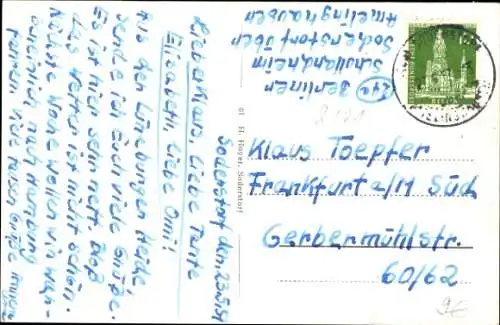 Soderstorf den, 23.5.51
Lieber Klaus, liebe Tante
Elisabeth, liebe Omi!
Aus der Lüneburger Heide,
sende ich euch viele Grüße.
Es ist hier sehr nett. Bloß
das Wetter ist nicht schön.
Nächste Woche wollen wir
nach Hamburg
fahren. Viele Grüße
Berliner
Schullandheim
Soderstorf über
Amelinghausen
01 H. Soderstorf
Klaus Toepfer
Frankfurt a/M Süd
Gerbermühlstr.
60/62
9€